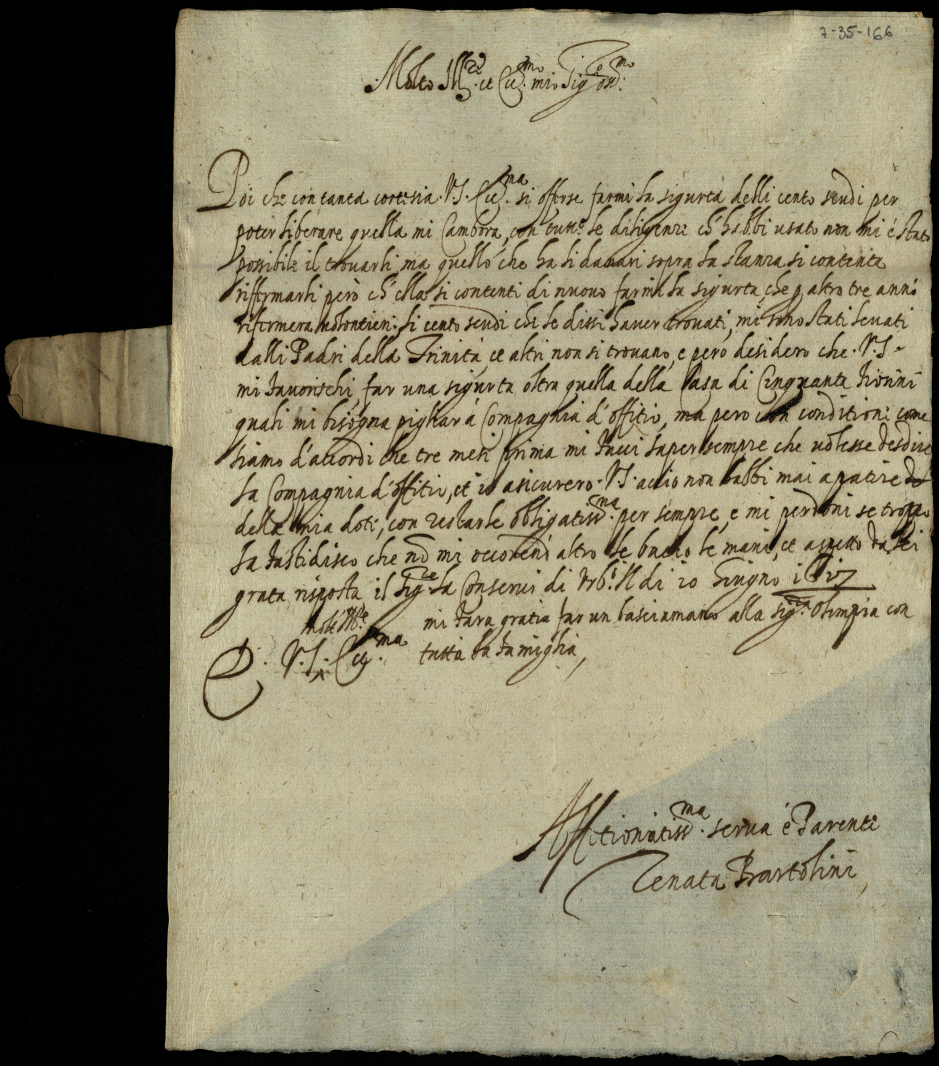 7-35-166
Molto Ill.re et Ecc.mo mio Sig.r oss.mo
Poi che con tanta cortesia V.S. Ecc.ma si offerse farmi la sigurtà delli cento scudi per
poter liberare quella mi Cambora, con tutte le diligenze ch'habbi usato non mi è stato
possibile il trovarli ma quello che ha li danari sopra la stanza si contenta
riffirmarli però ch'ella si contenti di nuovo farmi la sigurta, che p altro tre anni
rifermera volontieri. li cento scudi che le dissi haver trovati, mi sono stati levati
dalli Padri della Trinità, et altri non si trovano, e però desidero che V.S.
mi favorischi, far una sigurta oltra quella della Casa di Cinquanta fiorini
quali mi bisogna pigliar à Compagnia d'offitio, ma pero con conditioni come
siamo d'accordi che tre mesi prima mi facci saper sempre che volesse desdire
la Compagnia d'offitio, et io asicurero V.S. acciò non habbi mai a patire
della mia dote, con restarle obligatiss.ma per sempre, e mi perdoni se troppo
la fastidisco che nō mi occorendi altro le bacio le mani, et aspetto da lei
grata risposta il Sig.re la Conservi di Urb.o Il di 20 Giugno
D. V.S. molt' Ill.e Ecc.ma
mi fara gratia far un basciamano alla sig.ra Olimpia con
tutta la famiglia,
Affetionatiss.ma serva è Parente
Zenata Bartolini